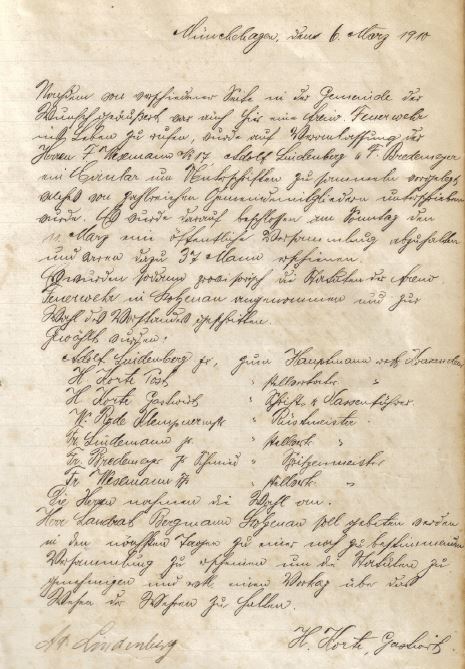 Münchehagen, den 6. März 1910
Nachdem von verschiedener Seite in der Gemeinde der
Wunsch geäußert war auch hier eine freiw. Feuerwehr
ins Leben zu rufen, wurde auf Veranlassung der
Herren F. Wesemann Adolf Lindenberg u F. Bredemeyer
um Unterschriften zu sammeln vorgelegt
welches von zahlreichen Gemeindemitgliedern unterschrieben
wurde. Es wurde darauf beschlossen am Sonntag den
März eine öffentliche Versammlung abzuhalten
und waren dazu 37 Mann erschienen.
Es wurden sodann provisorisch die Statuten der freiw.
Feuerwehr in Stolzenau angenommen und zur
Wahl des Vorstandes geschritten.
Gewählt wurden:
Adolf Lindenberg jr. zum Hauptmann
H. Korte " stellvertr. "
H. Korte Gastwirt " Schrift u Kassenführer
W. Rode Klempnermstr " Rüstmeister
Fr. Lindemann jr. " stellvertr. "
Fr. Bredemeyer jr Schmied " Spritzenmeister
Fr. Wesemann " stellvertr. "
Die Herren nahmen die Wahl an.
Herr Landrat Bergmann Stolzenau soll gebeten werden
in den nächsten Tagen zu einer noch zu bestimmenden
Versammlung zu erscheinen um die Statuten zu
genehmigen und evtl. einen Vortrag über das
Wesen der Wehren zu halten.
Ad. Lindenberg H. Korte, Gastwirt